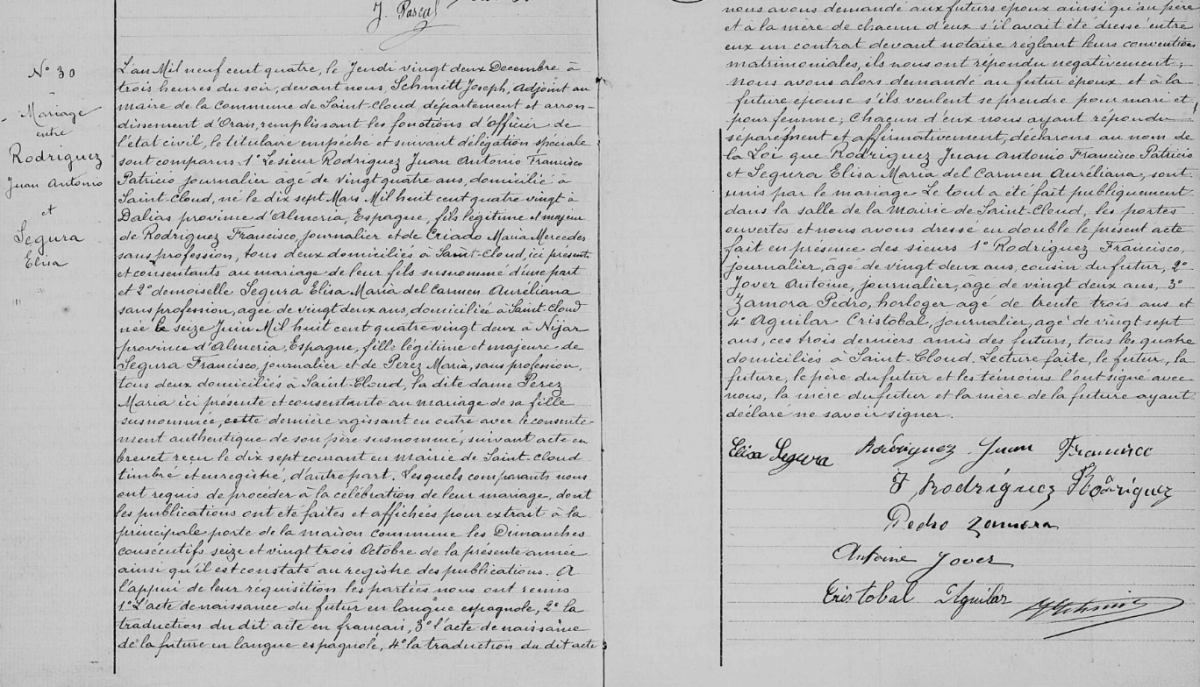 J. Pascal
N° 30
Mariage
entre
Rodriguez
Juan Antonio
et
Segura
Elisa
L'an Mil neuf cent quatre, le Jeudi vingt deux Decembre à
trois heures du soir, devant nous, Schmitt Joseph, adjoint au
maire de la Commune de Saint-Cloud, département et arron-
dissement d'Oran, remplissant les fonctions d'officier de
l'état civil, le titulaire empêché et suivant délégation spéciale
sont comparus. 1° Le sieur Rodriguez Juan Antonio Francisco
Patricio journalier âgé de vingt quatre ans, domicilié à
Saint-Cloud, né le dix sept Mars Mil huit cent quatre vingt à
Dalias province d'Almeria, Espagne, fils légitime et majeur
de Rodriguez Francisco, journalier et de Criado Maria Mercedes
sans profession, tous deux domiciliés à Saint-Cloud, ici présents
et consentants au mariage de leur fils susnommé d'une part
et 2° demoiselle Segura Elisa Maria del Carmen Auréliana
sans profession, agée de vingt deux ans, domiciliée à Saint-Cloud
née le seize Juin Mil huit cent quatre vingt deux à Nijar
province d'Almeria, Espagne, fille légitime et majeure de
Segura Francisco, journalier et de Perez Maria, sans profession,
tous deux domiciliés à Saint-Cloud, la dite dame Perez
Maria ici présente et consentante au mariage de sa fille
susnommée, cette dernière agissant en outre avec le consente-
ment authentique de son père susnommé, suivant acte en
brevet reçu le dix sept courant en mairie de Saint-Cloud
timbré et enregistré, d'autre part, Lesquels comparants nous
ont requis de procéder à la célébration de leur mariage, dont
les publications ont été faites et affichées pour extrait à la
principale porte de la maison commune les Dimanches
consécutifs seize et vingt trois Octobre de la présente année
ainsi qu'il est constaté au registre des publications. A
l'appui de leur réquisition les parties nous ont remis
1° L'acte de naissance du futur en langue espagnole, 2° la
traduction du dit acte en français, 3° l'acte de naissance
de la future en langue espagnole, 4° la traduction du dit acte
nous avons demandé aux futurs époux ainsi qu'au père
et à la mère de chacun d'eux s'il avait été dressé entre
eux un contrat devant notaire réglant leurs conventions
matrimoniales, ils nous ont répondu negativement;
nous avons alors demandé au futur époux et à la
future épouse s'ils veulent se prendre pour mari et
pour femme; Chacun d'eux nous ayant répondu
séparément et affirmativement, déclarons au nom de
la Loi que Rodriguez Juan Antonio Francisco Patricio
et Segura Elisa Maria del Carmen Auréliana, sont
unis par le mariage. Le tout a été fait publiquement
dans la salle de la Mairie de Saint-Cloud, les portes
ouvertes et nous avons dressé en double le présent acte
fait en présence des sieurs 1° Rodriguez Francisco,
journalier, âgé de vingt deux ans, cousin du futur, 2°
Jover Antoine, journalier, age de vingt deux ans, 3°
Zamora Pedro, horloger agé de trente trois ans et
4° Aguilar Cristobal, journalier, agé de vingt sept
ans, ces trois derniers amis des futurs, tous les quatre
domiciliés à Saint-Cloud. Lecture faite, le futur, la
future, le père du futur et les témoins l'ont signé avec
nous, la mère du futur et la mère de la future ayant
déclaré ne savoir signer.
Elisa Segura Rodriguez Juan Francisco
F Rodriguez Rodriguez
Pedro Zamora
Antoine Jover
Cristobal Aguilar JSchmitt